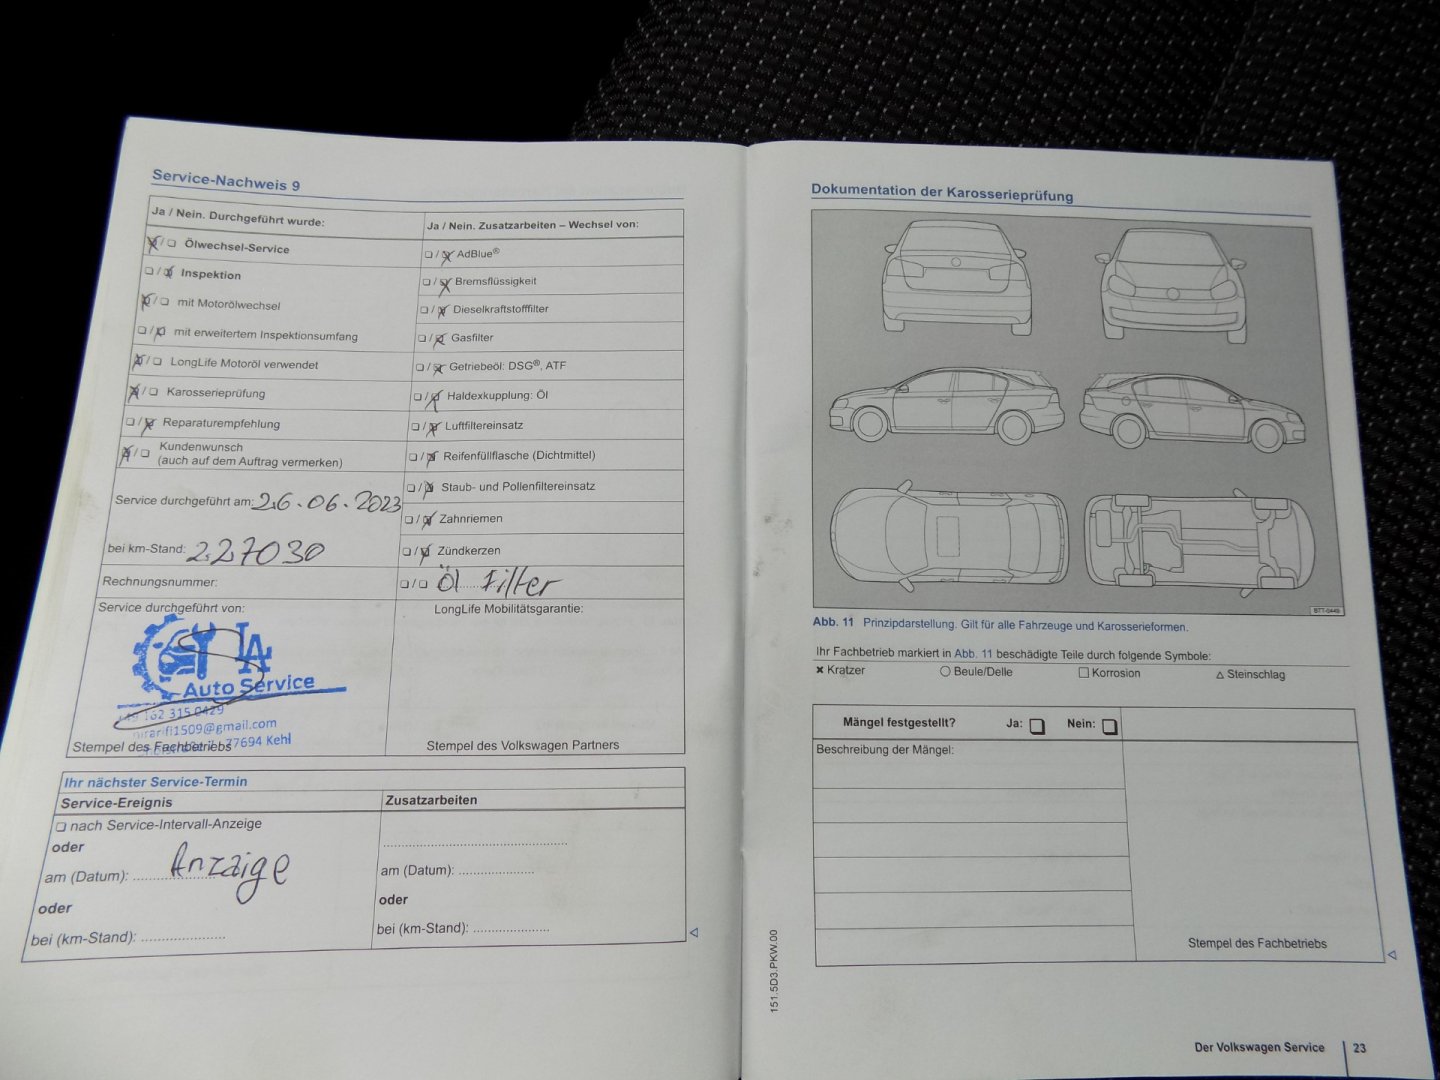 Service-Nachweis 9
Ja / Nein. Durchgeführt wurde:
Ja / Nein. Zusatzarbeiten – Wechsel von:
Ölwechsel-Service
Inspektion
mit Motorölwechsel
mit erweitertem Inspektionsumfang
LongLife Motoröl verwendet
Karosserieprüfung
Reparaturempfehlung
Kundenwunsch
(auch auf dem Auftrag vermerken)
AdBlue®
Bremsflüssigkeit
Dieselkraftstofffilter
Gasfilter
Getriebeöl: DSG®, ATF
Haldexkupplung: Öl
Luftfiltereinsatz
Reifenfüllflasche (Dichtmittel)
Staub- und Pollenfiltereinsatz
Zahnriemen
Zündkerzen
Öl Filter
Service durchgeführt am: 26.06.2023
bei km-Stand: 227030
Rechnungsnummer:
Service durchgeführt von:
LongLife Mobilitätsgarantie:
LA
Auto Service
+49 162 315 0429
77694 Kehl
Stempel des Fachbetriebs
Stempel des Volkswagen Partners
Ihr nächster Service-Termin
Service-Ereignis
Zusatzarbeiten
nach Service-Intervall-Anzeige
oder
Anzaige
am (Datum):
oder
bei (km-Stand):
am (Datum):
oder
bei (km-Stand):
Dokumentation der Karosserieprüfung
BTT-0449
Abb. 11 Prinzipdarstellung. Gilt für alle Fahrzeuge und Karosserieformen.
Ihr Fachbetrieb markiert in Abb. 11 beschädigte Teile durch folgende Symbole:
Kratzer
Beule/Delle
Korrosion
Steinschlag
Mängel festgestellt? Ja: Nein:
Beschreibung der Mängel:
Stempel des Fachbetriebs
151.5D3.PKW.00
Der Volkswagen Service 23